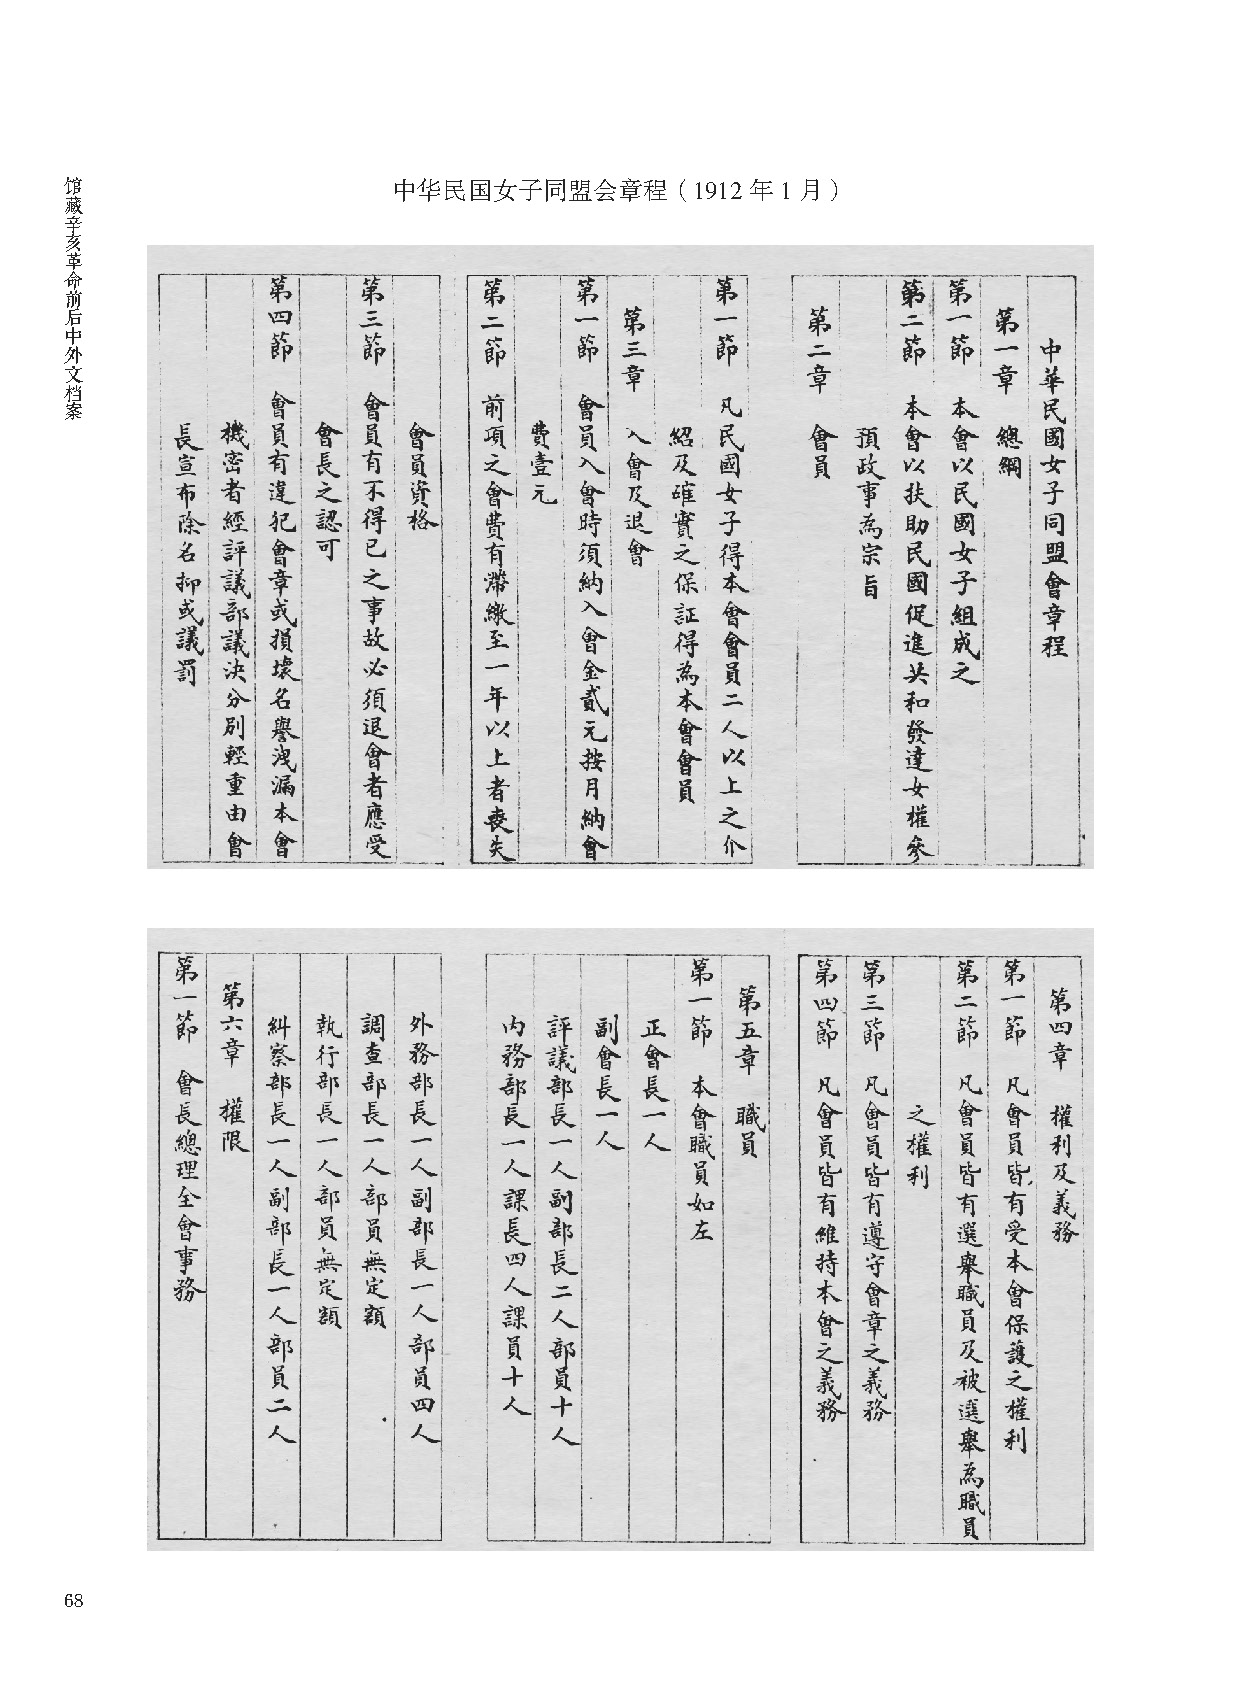 馆藏辛亥革命前后中外文档案
中华民国女子同盟会章程（1912 年 1 月）
中華民國女子同盟會章程
第一章　總綱
第一節　本會以民國女子組成之
第二節　本會以扶助民國促進共和發達女權參
預政事為宗旨
第二章　會員
第一節　凡民國女子得本會會員二人以上之介
紹及確實之保証得為本會會員
第三章　入會及退會
第一節　會員入會時須納入會金貳元按月納會
費壹元
第二節　前項之會費有滯繳至一年以上者喪失
會員資格
第三節　會員有不得已之事故必須退會者應受
會長之認可
第四節　會員有違犯會章或損壞名譽洩漏本會
機密者經評議部議決分別輕重由會
長宣布除名抑或議罰
第四章　權利及義務
第一節　凡會員皆有受本會保護之權利
第二節　凡會員皆有選舉職員及被選舉為職員
之權利
第三節　凡會員皆有遵守會章之義務
第四節　凡會員皆有維持本會之義務
第五章　職員
第一節　本會職員如左
正會長一人
副會長一人
評議部長一人副部長二人部員十人
內務部長一人課長四人課員十人
外務部長一人副部長一人部員四人
調查部長一人部員無定額
執行部長一人部員無定額
糾察部長一人副部長一人部員二人
第六章　權限
第一節　會長總理全會事務
68